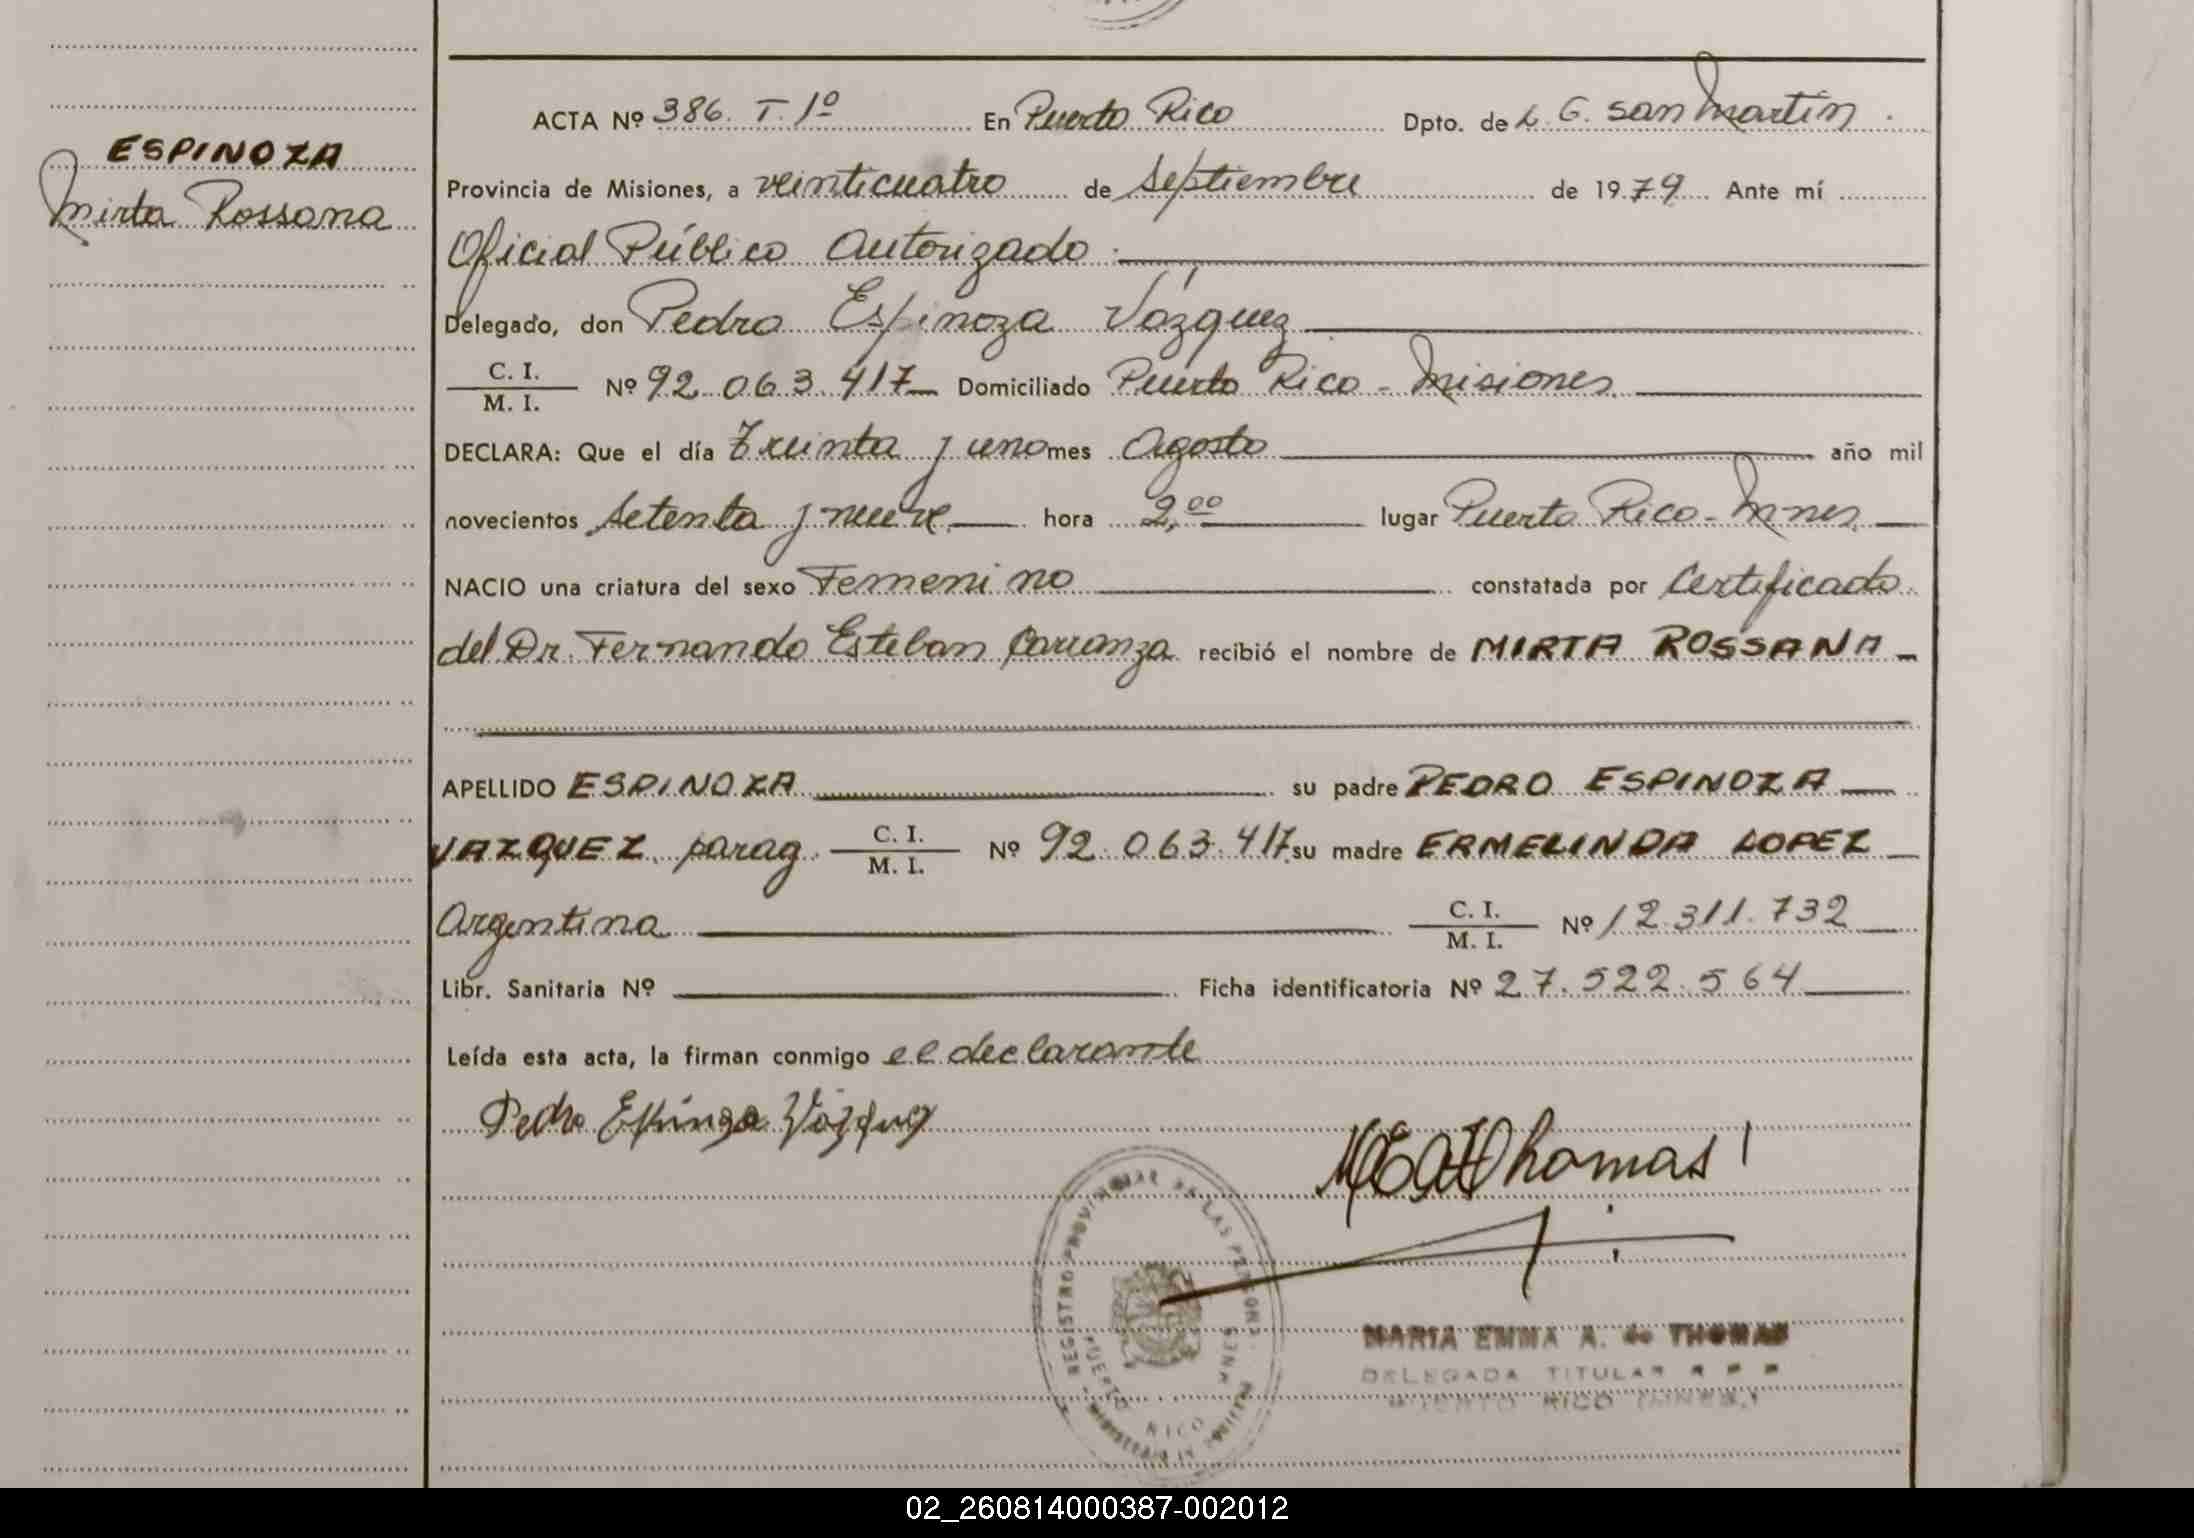 ESPINOZA
Mirta Rossana
ACTA Nº 386. T. 1º En Puerto Rico Dpto. de L. G. San Martín.
Provincia de Misiones, a veinticuatro de Septiembre de 1979 Ante mí
Oficial Público Autorizado.
Delegado, don Pedro Espinoza Vázquez
C. I. / M. I. Nº 92.063.417 Domiciliado Puerto Rico - Misiones.
DECLARA: Que el día Treinta y uno mes Agosto año mil
novecientos Setenta y nueve hora 2,00 lugar Puerto Rico - Mnes.
NACIO una criatura del sexo Femenino constatada por Certificado
del Dr. Fernando Esteban Carranza recibió el nombre de MIRTA ROSSANA
APELLIDO ESPINOZA su padre PEDRO ESPINOZA
VAZQUEZ parag. C. I. / M. I. Nº 92.063.417 su madre ERMELINDA LOPEZ
Argentina C. I. / M. I. Nº 12.311.732
Libr. Sanitaria Nº Ficha identificatoria Nº 27.522.564
Leída esta acta, la firman conmigo el declarante
Pedro Espinoza Vázquez
MEA Thomas
REGISTRO PROVINCIAL DE LAS PERSONAS
PUERTO RICO MNES
MARIA EMMA A. de THOMAS
DELEGADA TITULAR R P P
PUERTO RICO (MNES.)
02_260814000387-002012